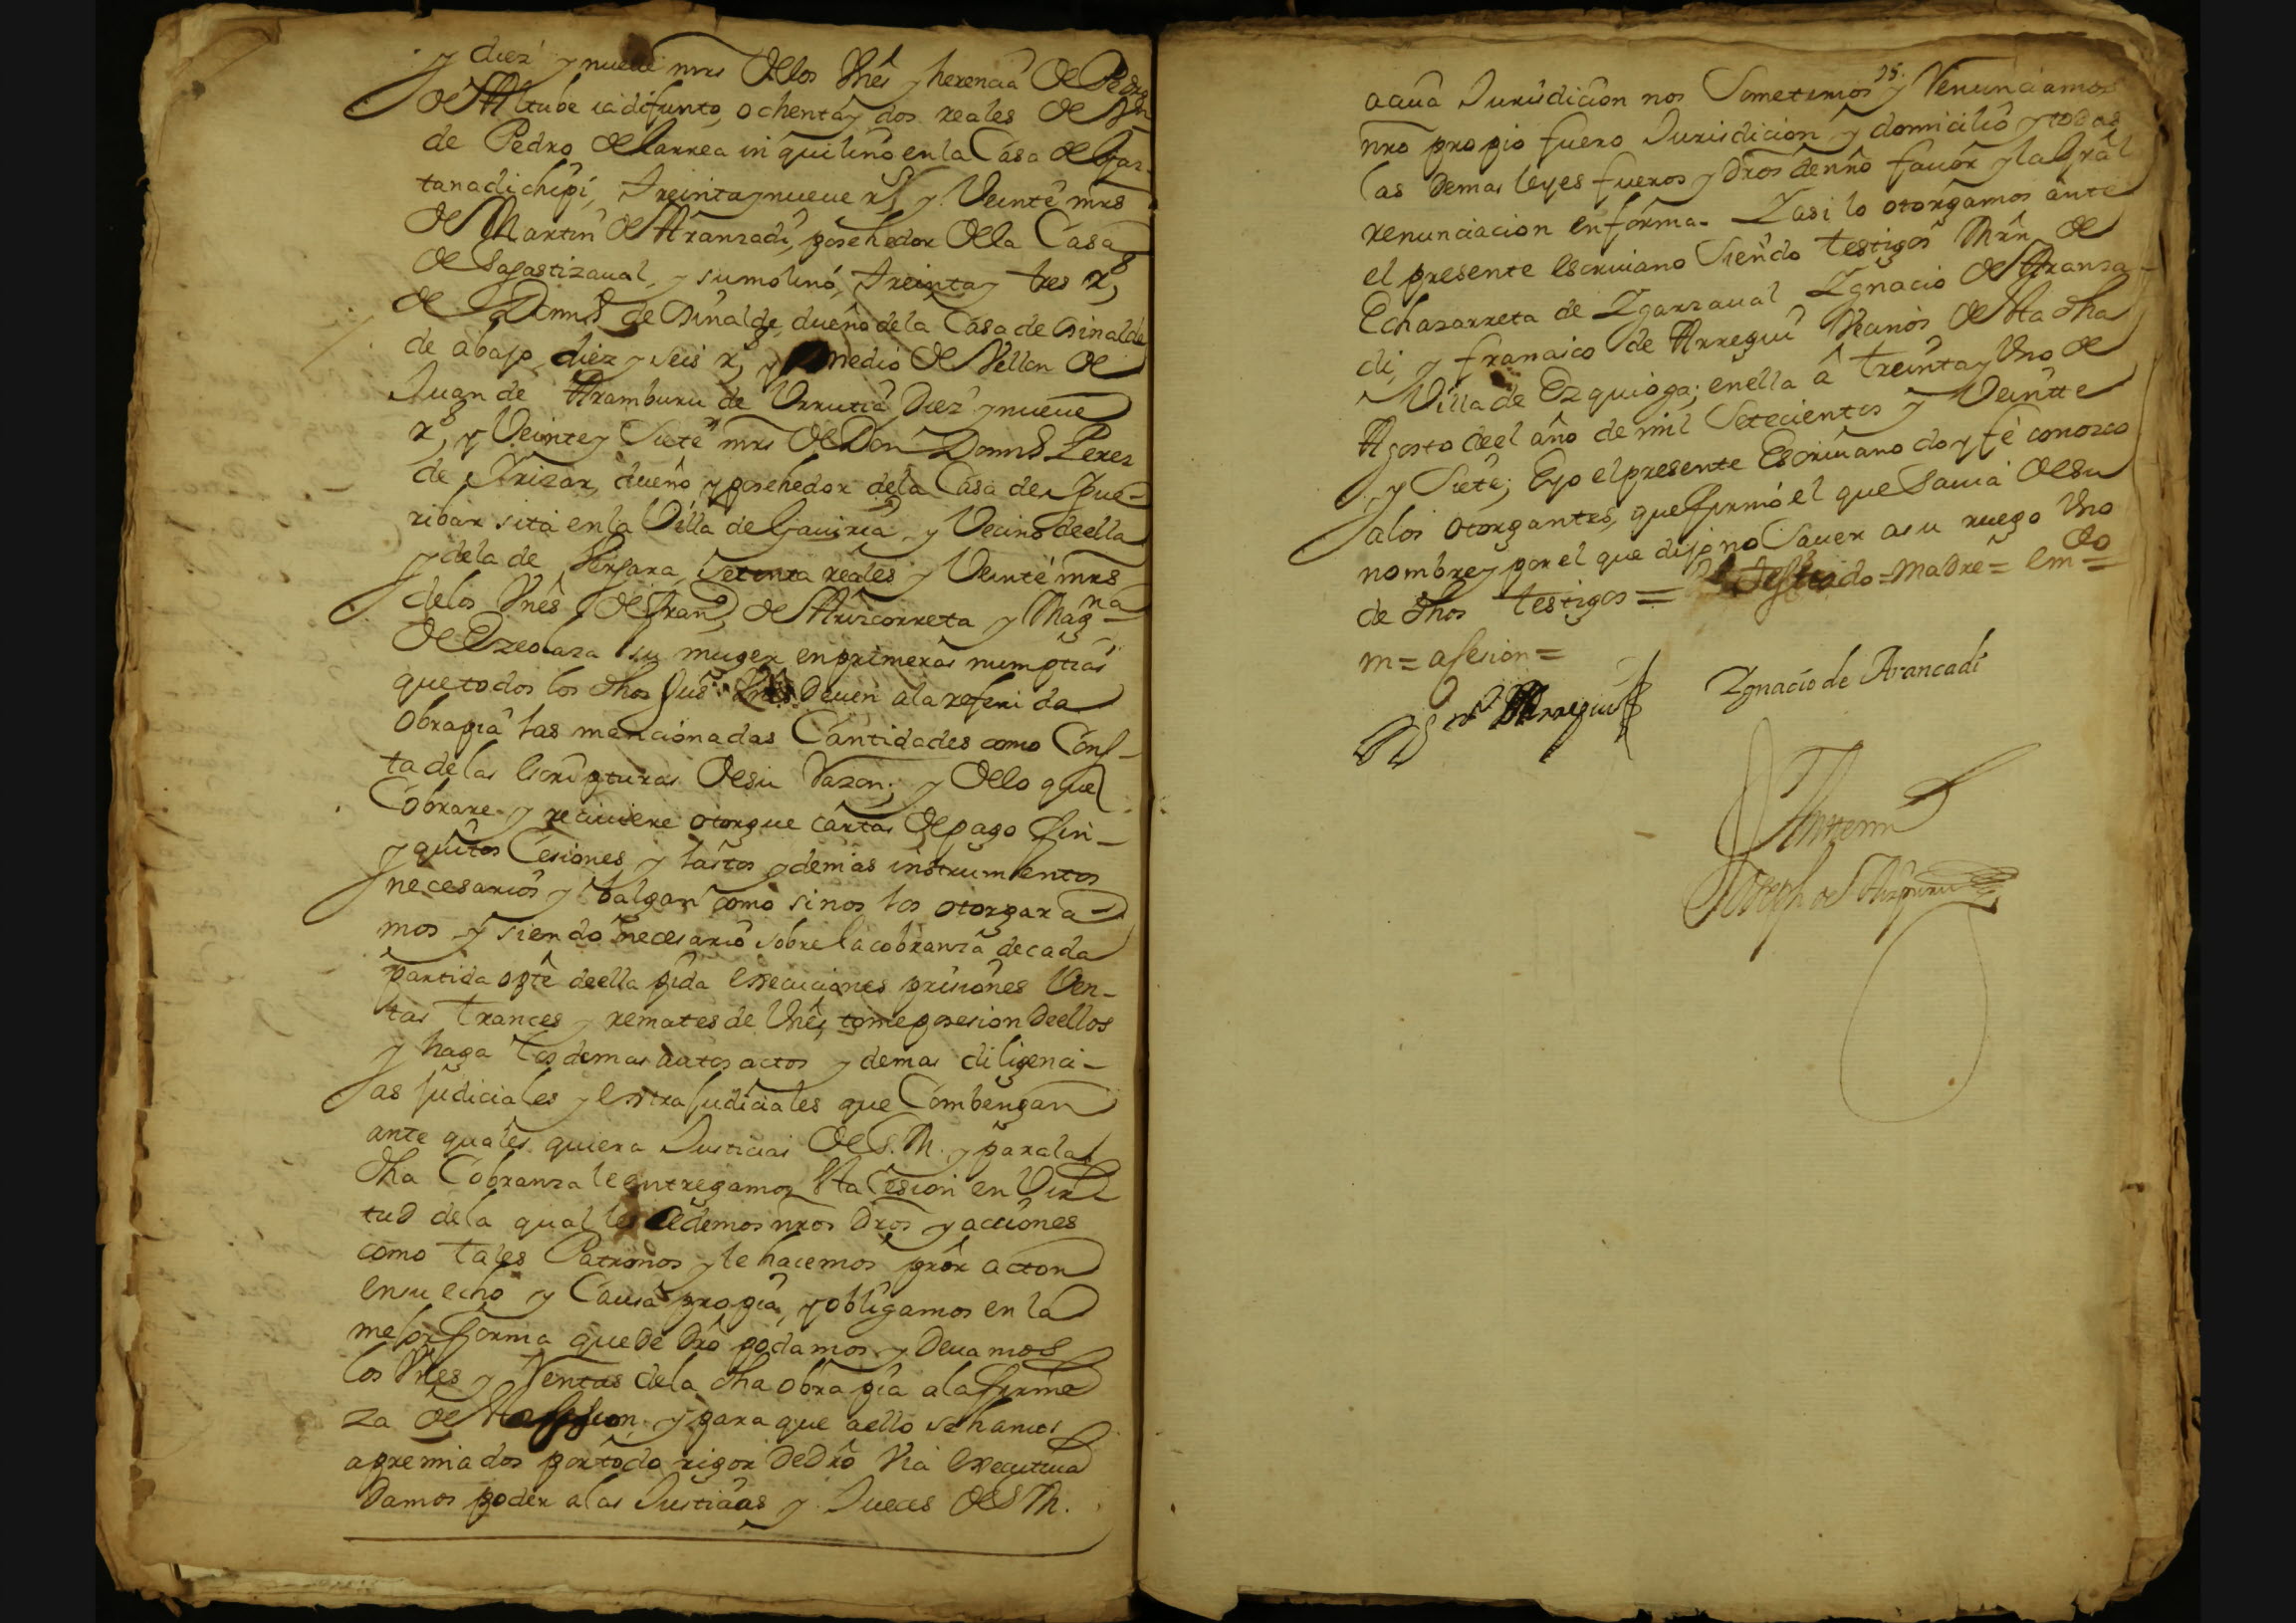 y diez y nueue mrs de los vnēs y herencia de Pedro
de Altube ia difunto, ochenta y dos reales de
de Pedro de Larrea inquilino en la Casa de Gaz-
tanadichipi, treinta y nueue rs y veinte mrs
de Martin de Aranzadi, posehedor de la Casa
de Sagastizaual, y su molino, treinta y tres rs
de Domḡ de Sinalde, dueño de la Casa de Sinalde
de abajo, diez y seis rs y medio de vellon de
Juan de Aramburu de Vrrutia Diez y nueue
rs, y Veinte y Siete mrs de Don Domḡ Perez
de Arizar, dueño y posehedor de la Casa de Ypue-
ribar sita en la Villa de Gauiria, y Vecino de ella
y de la de Vergara, Setenta reales y Veinte mrs
de los vnēs de Fran.co de Arizcorreta y Mag.na
de Ezeolaza su muger en primeras numptias
que todos los dhos sus Deuen a la referida
obrapia las mencionadas Cantidades como Cons-
ta de las escripturas de su Razon; y de lo que
Cobrare y reciuiere otorgue cartas de pago fin-
y quitos Cesiones y lastos y demas instrumentos
necesarios y balgan como si nos los otorgara-
mos y siendo necesario sobre la cobranza de cada
partida o pte de ella pida execuciones prisiones Ven-
tas trances y remates de vnēs, tome posesion de ellos
y haga los demas autos actos y demas diligenci-
as judiciales y extrajudiciales que Combengan
ante quales quiera Justicias de S. M. y para la
dha Cobranza le entregamos sta Cesion en Vir-
tud de la qual le cedemos nros Dros y acciones
como tales Patronos y le hacemos prōr actor
en su echo y Causa propia, y obligamos en la
mejor forma que de Drō podamos y Deuamos
los vnes y Rentas de la dha obra pia a la firme
za de sta sesion, y para que a ello sehamos
apremiados por todo rigor de Drō Via executiua
Damos poder a las Justicias y Jueces de S M.
25.
a cuia Jurisdicion nos Sometemos y Renunciamos
nrō propio fuero Jurisdicion y domicilio y todas
las Demas leyes fueros y Dros de nrō fauor y la Grāl
renunciacion en forma. Y asi lo otorgamos ante
el presente escriuano Siendo testigos Mrn de
Echazarreta de Ygarzaual Ygnacio de Aranza-
di, y Francisco de Arregui Vecinos de sta dha
Villa de Ezquioga; en ella â treinta y Vno de
Agosto de el año de mil Setecientos y Veintte
y Siete; E yo el presente Escriuano doy fê conozco
a los otorgantes, que firmó el que Sauia de su
nombre y por el que dijo no Sauer a su ruego Vno
de dhos testigos = Testado = Madre = em.do =
m = a sesion =
Fran.co Arregui
Ygnacio de Arancadi
Ante mi
Joseph de